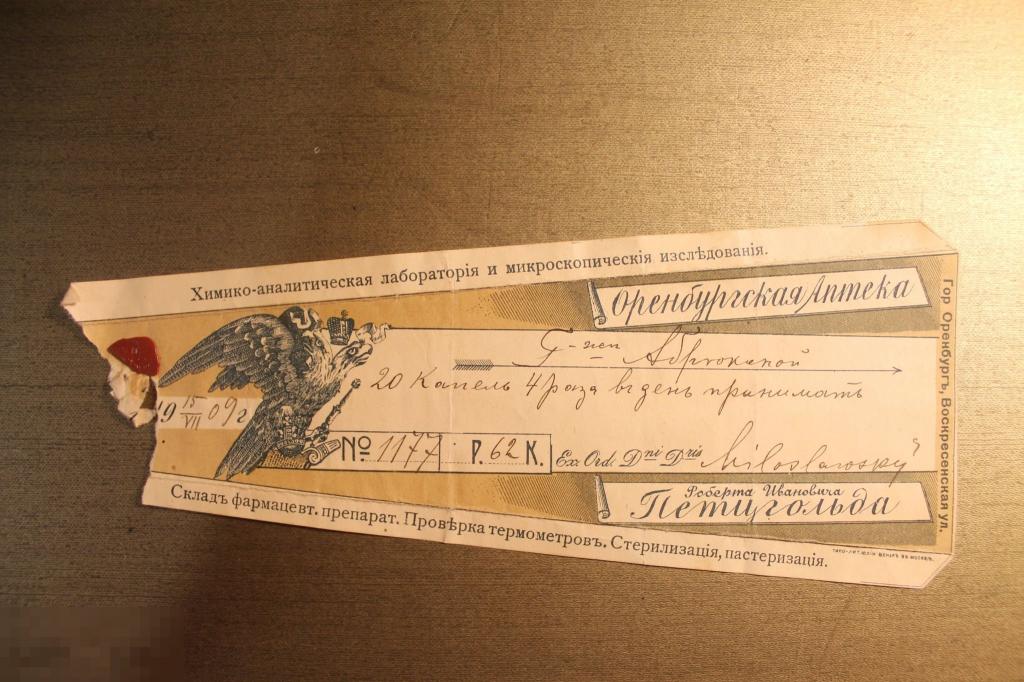 Химико-аналитическая лабораторія и микроскопическія изслѣдованія.
Оренбургская Аптека
Г-жеп
20 капель 4 раза въ день принимать
19 15/VII 09 г
№ 1177 Р. 62 К. Ex. Ord. Dni Dris Miloslawsky
Роберта Ивановича
Петцгольда
Складъ фармацевт. препарат. Провѣрка термометровъ. Стерилизація, пастеризація.
Гор Оренбургъ, Воскресенская ул.